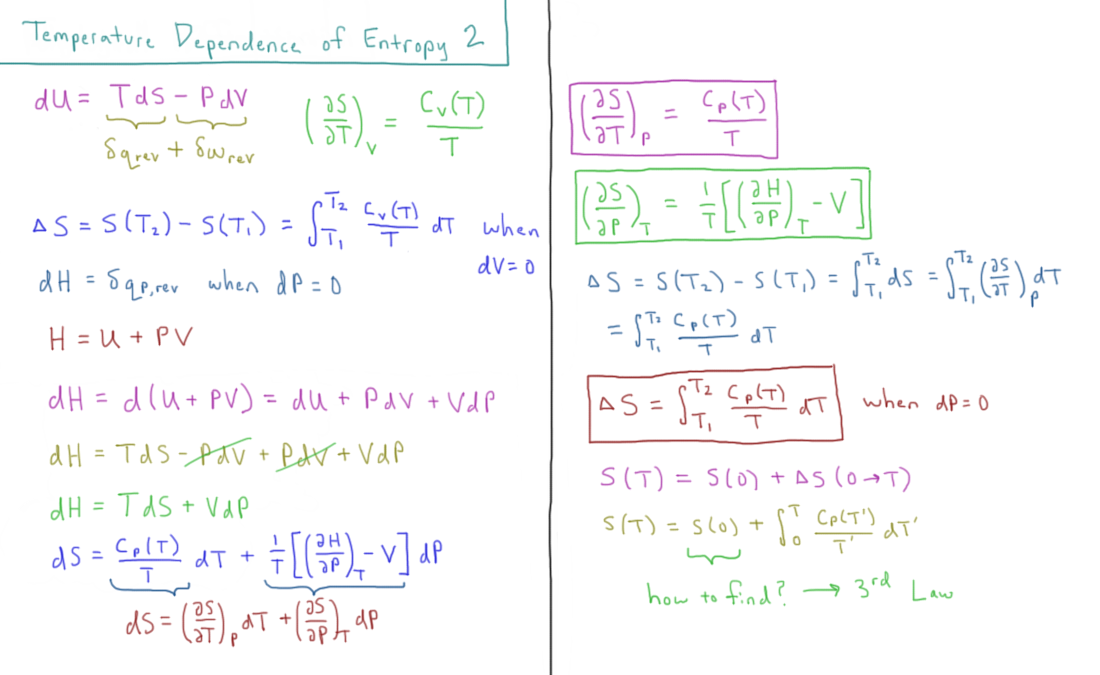 Temperature Dependence of Entropy 2
dU = TdS - PdV
δq_rev + δw_rev
(∂S/∂T)_V = C_V(T)/T
ΔS = S(T₂) - S(T₁) = ∫_{T₁}^{T₂} C_V(T)/T dT when
dV = 0
dH = δq_{P,rev} when dP = 0
H = U + PV
dH = d(U + PV) = dU + PdV + VdP
dH = TdS - PdV + PdV + VdP
dH = TdS + VdP
dS = C_P(T)/T dT + 1/T [(∂H/∂P)_T - V] dP
dS = (∂S/∂T)_P dT + (∂S/∂P)_T dP
(∂S/∂T)_P = C_P(T)/T
(∂S/∂P)_T = 1/T [(∂H/∂P)_T - V]
ΔS = S(T₂) - S(T₁) = ∫_{T₁}^{T₂} dS = ∫_{T₁}^{T₂} (∂S/∂T)_P dT
= ∫_{T₁}^{T₂} C_P(T)/T dT
ΔS = ∫_{T₁}^{T₂} C_P(T)/T dT when dP = 0
S(T) = S(0) + ΔS(0→T)
S(T) = S(0) + ∫_0^T C_P(T')/T' dT'
how to find? → 3rd Law